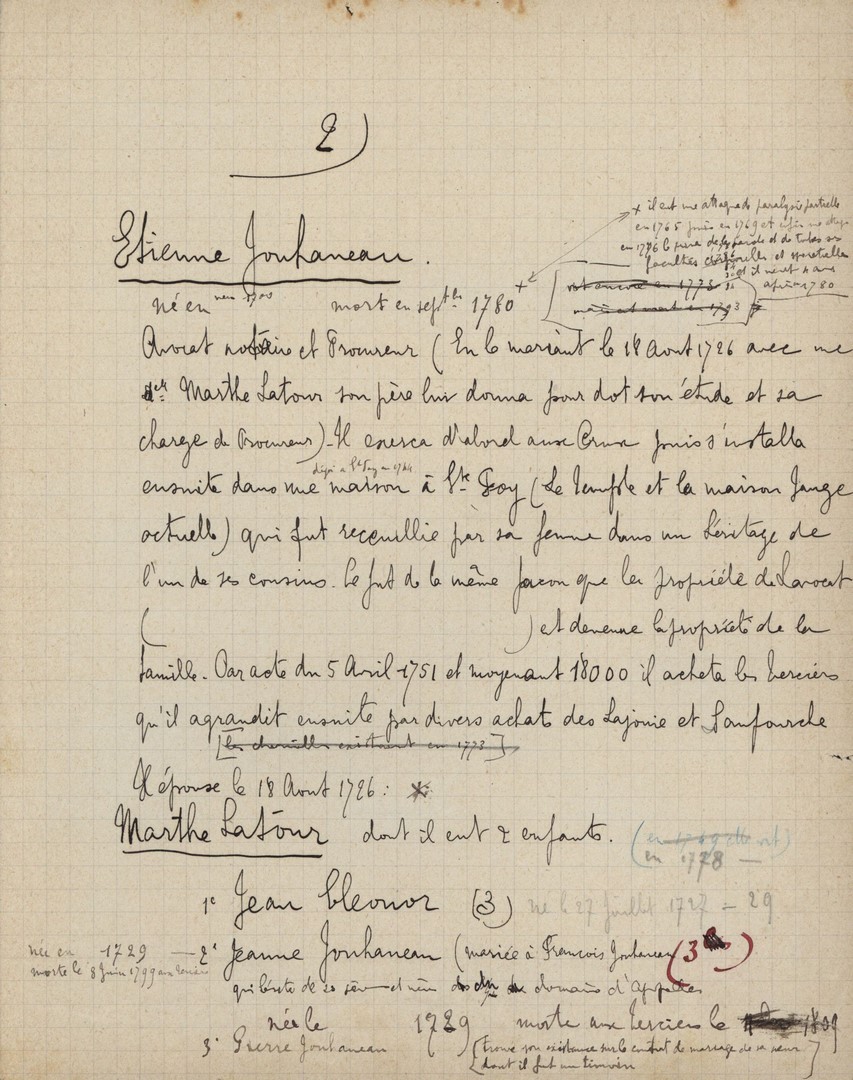 2)
+ il eut une attaque de paralysie partielle
en 1765 puis en 1769 et enfin
en 1776 la parole et de toutes ses
facultés et
et il meurt 4 ans
après 1780
Etienne Jouhaneau.
né en vers 1700 mort en septbre 1780 +
vit encore en 1775
mort en 1793
Avocat notaire et Procureur (En le mariant le 18 Aout 1726 avec une
delle Marthe Latour son père lui donna pour dot son étude et sa
charge de Procureur) - Il exerça d'abord aux Crus puis s'installa
déjà à Ste Foy en 1744
ensuite dans une maison à Ste Foy (Le Temple et la maison Jauge
actuelle) qui fut reçcuillie par sa femme dans un héritage de
l'un de ses cousins. Ce fut de la même façon que la propriété de Lavocat
( ) et devenue la propriété de la
famille. Par acte du 5 Avril 1751 et moyenant 18000 il acheta les Terciers
qu'il agrandit ensuite par divers achats des Lajonie et Sanfourche
[les chenilles existaient en 1773]
Il épouse le 18 Aout 1726 :
Marthe Latour dont il eut 2 enfants. (en 1769 elle vit)
en 1778 —
1e Jean Eleonor (3) né le 27 Juillet 1727 = 29
née en 1729 — 2e Jeanne Jouhaneau (mariée à François Jouhaneau (3 )
morte le 8 Juin 1799 aux Terciers
qui hérite de son et domaine d'
née le 1729 morte aux Terciers le 1809
3e Pierre Jouhaneau [trouvé son existence sur le contrat de mariage de sa soeur
dont il fut un témoin]